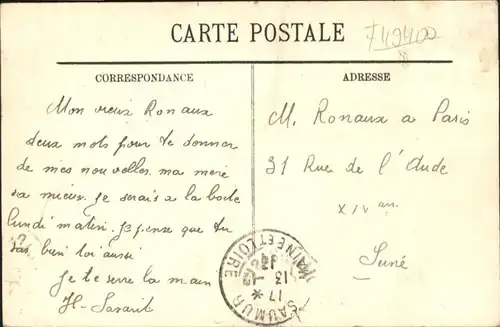 CARTE POSTALE
F49400
CORRESPONDANCE
ADRESSE
Mon vieux Ronaux
deux mots pour te donner
de mes nouvelles. ma mère
va mieux. Je serais a la boite
lundi matin. Je pense que tu
vas bien toi aussi
Je te serre la main
H-
M. Ronaux a Paris
31 Rue de l'Aude
XIV arr.
SAUMUR
MAINE ET LOIRE
17 *
13 -1